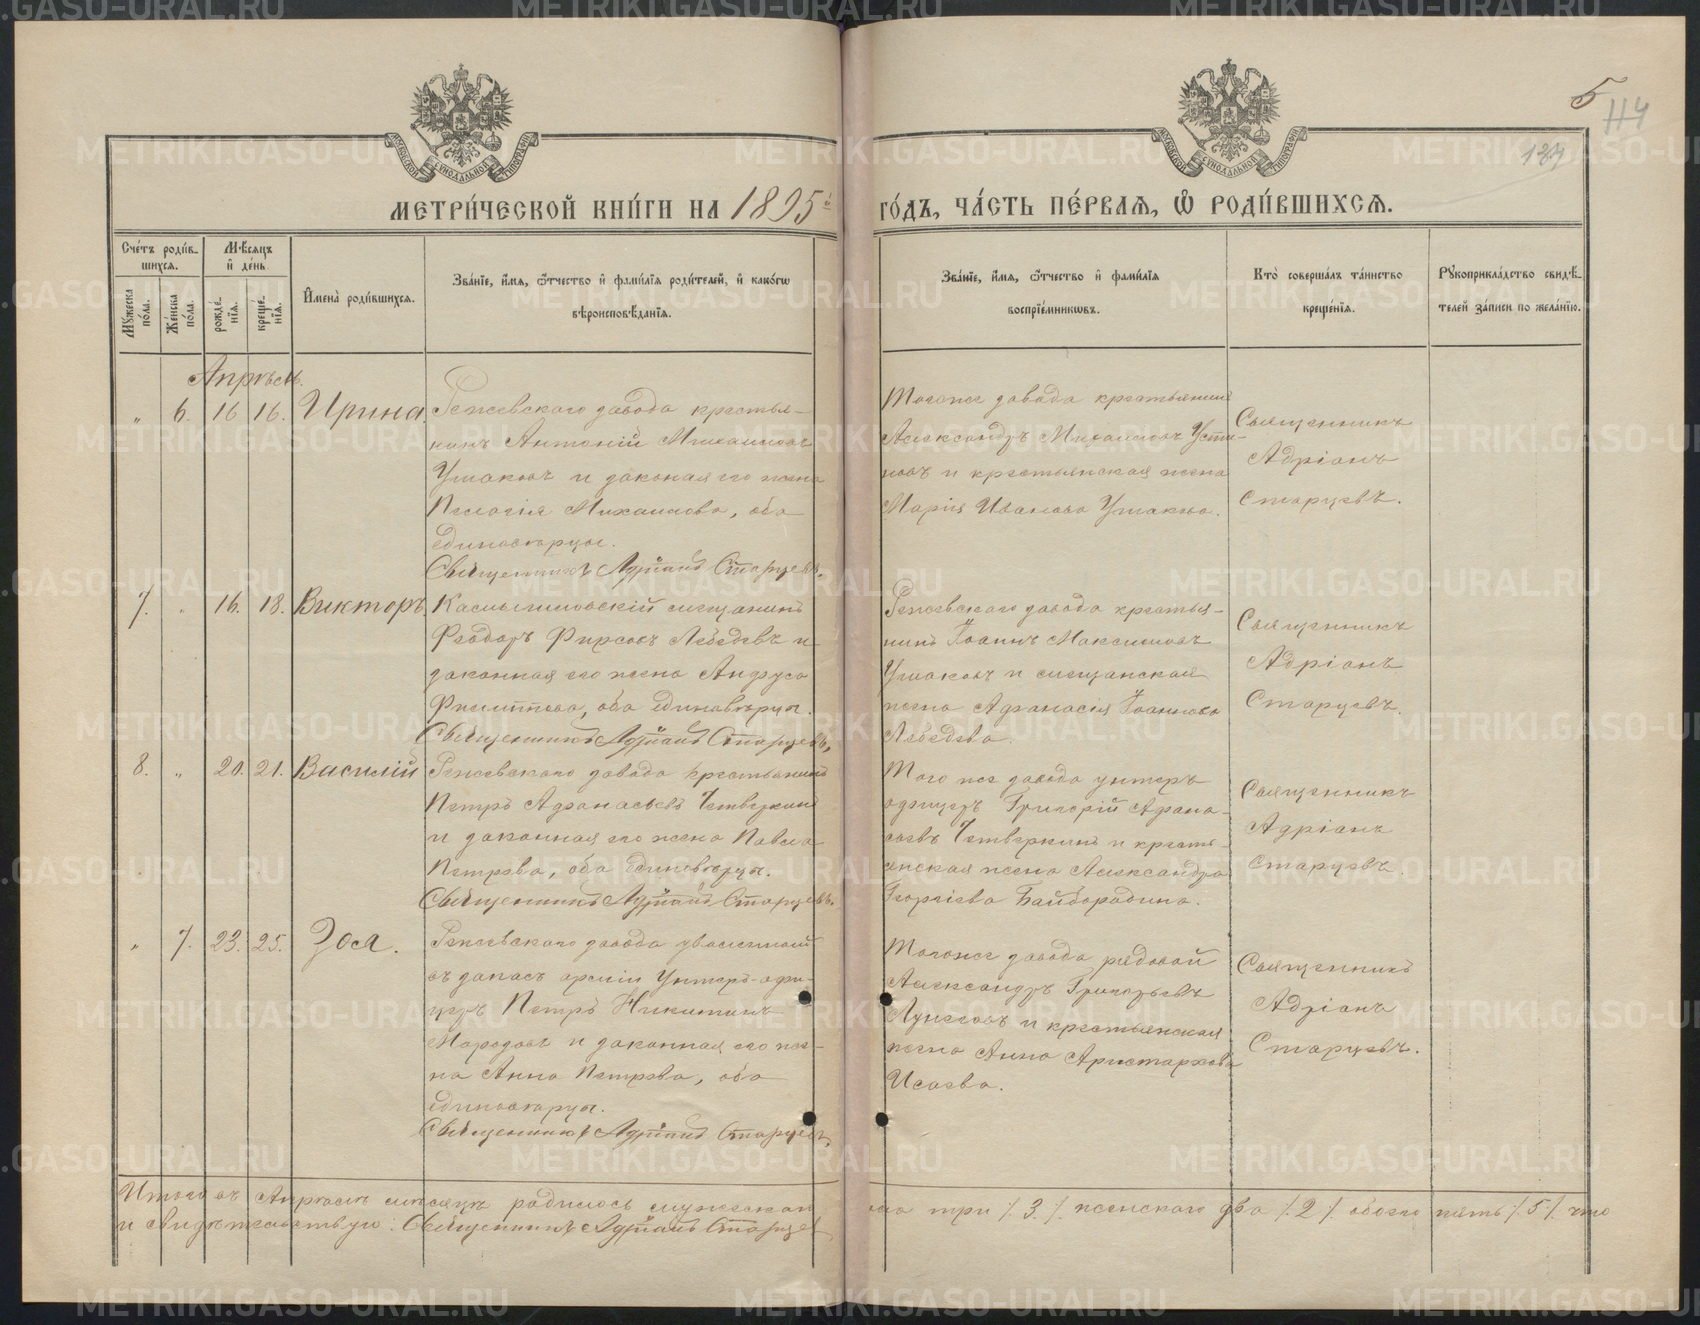 5
114
187
МОСКОВСКОЙ СУНОДАЛЬНОЙ ТИПОГРАФIИ
МОСКОВСКОЙ СУНОДАЛЬНОЙ ТИПОГРАФIИ
МЕТРИ́ЧЕСКОЙ КНИ́ГИ НА 1895й
ГО́ДЪ, ЧА́СТЬ ПЕ́РВАЯ, Ѡ҆ РОДИ́ВШИХСЯ.
Сче́тъ роди́в-
шихся.
Мѣ́сяцъ
и҆ де́нь
Мꙋжеска по́ла.
Же́нска по́ла.
рожде́-нїя.
креще́-нїя.
И҆мена̀ роди́вшихся.
Зва́нїе, и҆́мя, ѻ҆́тчество и҆ фами́лїя роди́телей, и҆ како́гѡ
вѣроисповѣ́данїя.
Зва́нїе, и҆́мя, ѻ҆́тчество и҆ фами́лїя
воспрїе́мникѡвъ.
Кто̀ соверша́лъ та́инство
креще́нїя.
Рꙋкоприкла́дство свидѣ́-
телей за́писи по жела́нїю.
Апрѣль.
" 6. 16 16. Ирина.
Режевского завода крестья-
нинъ Антоній Михаиловъ
Ушаковъ и законая его жена
Пелагія Михаилова, оба
единоверцы.
Священникъ Адріанъ Старцевъ.
Тогоже завода крестьянинъ
Александръ Михаиловъ Усти-
новъ и крестьянская жена
Марія Иванова Ушакова.
Священникъ
Адріанъ
Старцевъ.
7. " 16. 18. Викторъ
мещанинъ
Феодоръ Фирсовъ Лебедевъ и
законная его жена
Филиппова, оба единоверцы.
Священникъ Адріанъ Старцевъ.
Режевского завода крестья-
нинъ Іоаннъ Максимовъ
Ушаковъ и мещанская
жена Афанасія Іоаннова
Лебедева.
Священникъ
Адріанъ
Старцевъ.
8. " 20. 21. Василій
Режевского завода крестьянинъ
Петръ Афанасьевъ Четверкинъ
и законная его жена Павла
Петрова, оба единоверцы.
Священникъ Адріанъ Старцевъ.
Того же завода унтеръ
офицеръ Григорій Афана-
сьевъ Четверкинъ и кресть-
янская жена Александра
Георгіева Байбородина.
Священникъ
Адріанъ
Старцевъ.
" 7. 23. 25. Зоя.
Режевского завода уволенный
въ запасъ арміи Унтеръ-офи-
церъ Петръ Никитинъ
и законная его же-
на Анна Петрова, оба
единоверцы.
Священникъ Адріанъ Старцевъ.
Тогоже завода рядовой
Александръ Григорьевъ
и крестьянская
жена Анна Аристархова
Исаева.
Священникъ
Адріанъ
Старцевъ.
Итого въ Апрѣлѣ месяцѣ родилось мужескаго пола три /. 3 /. женскаго два /. 2 / обоего пять /. 5 /. что
и свидѣтельствую: Священникъ Адріанъ Старцев
METRIKI.GASO-URAL.RU